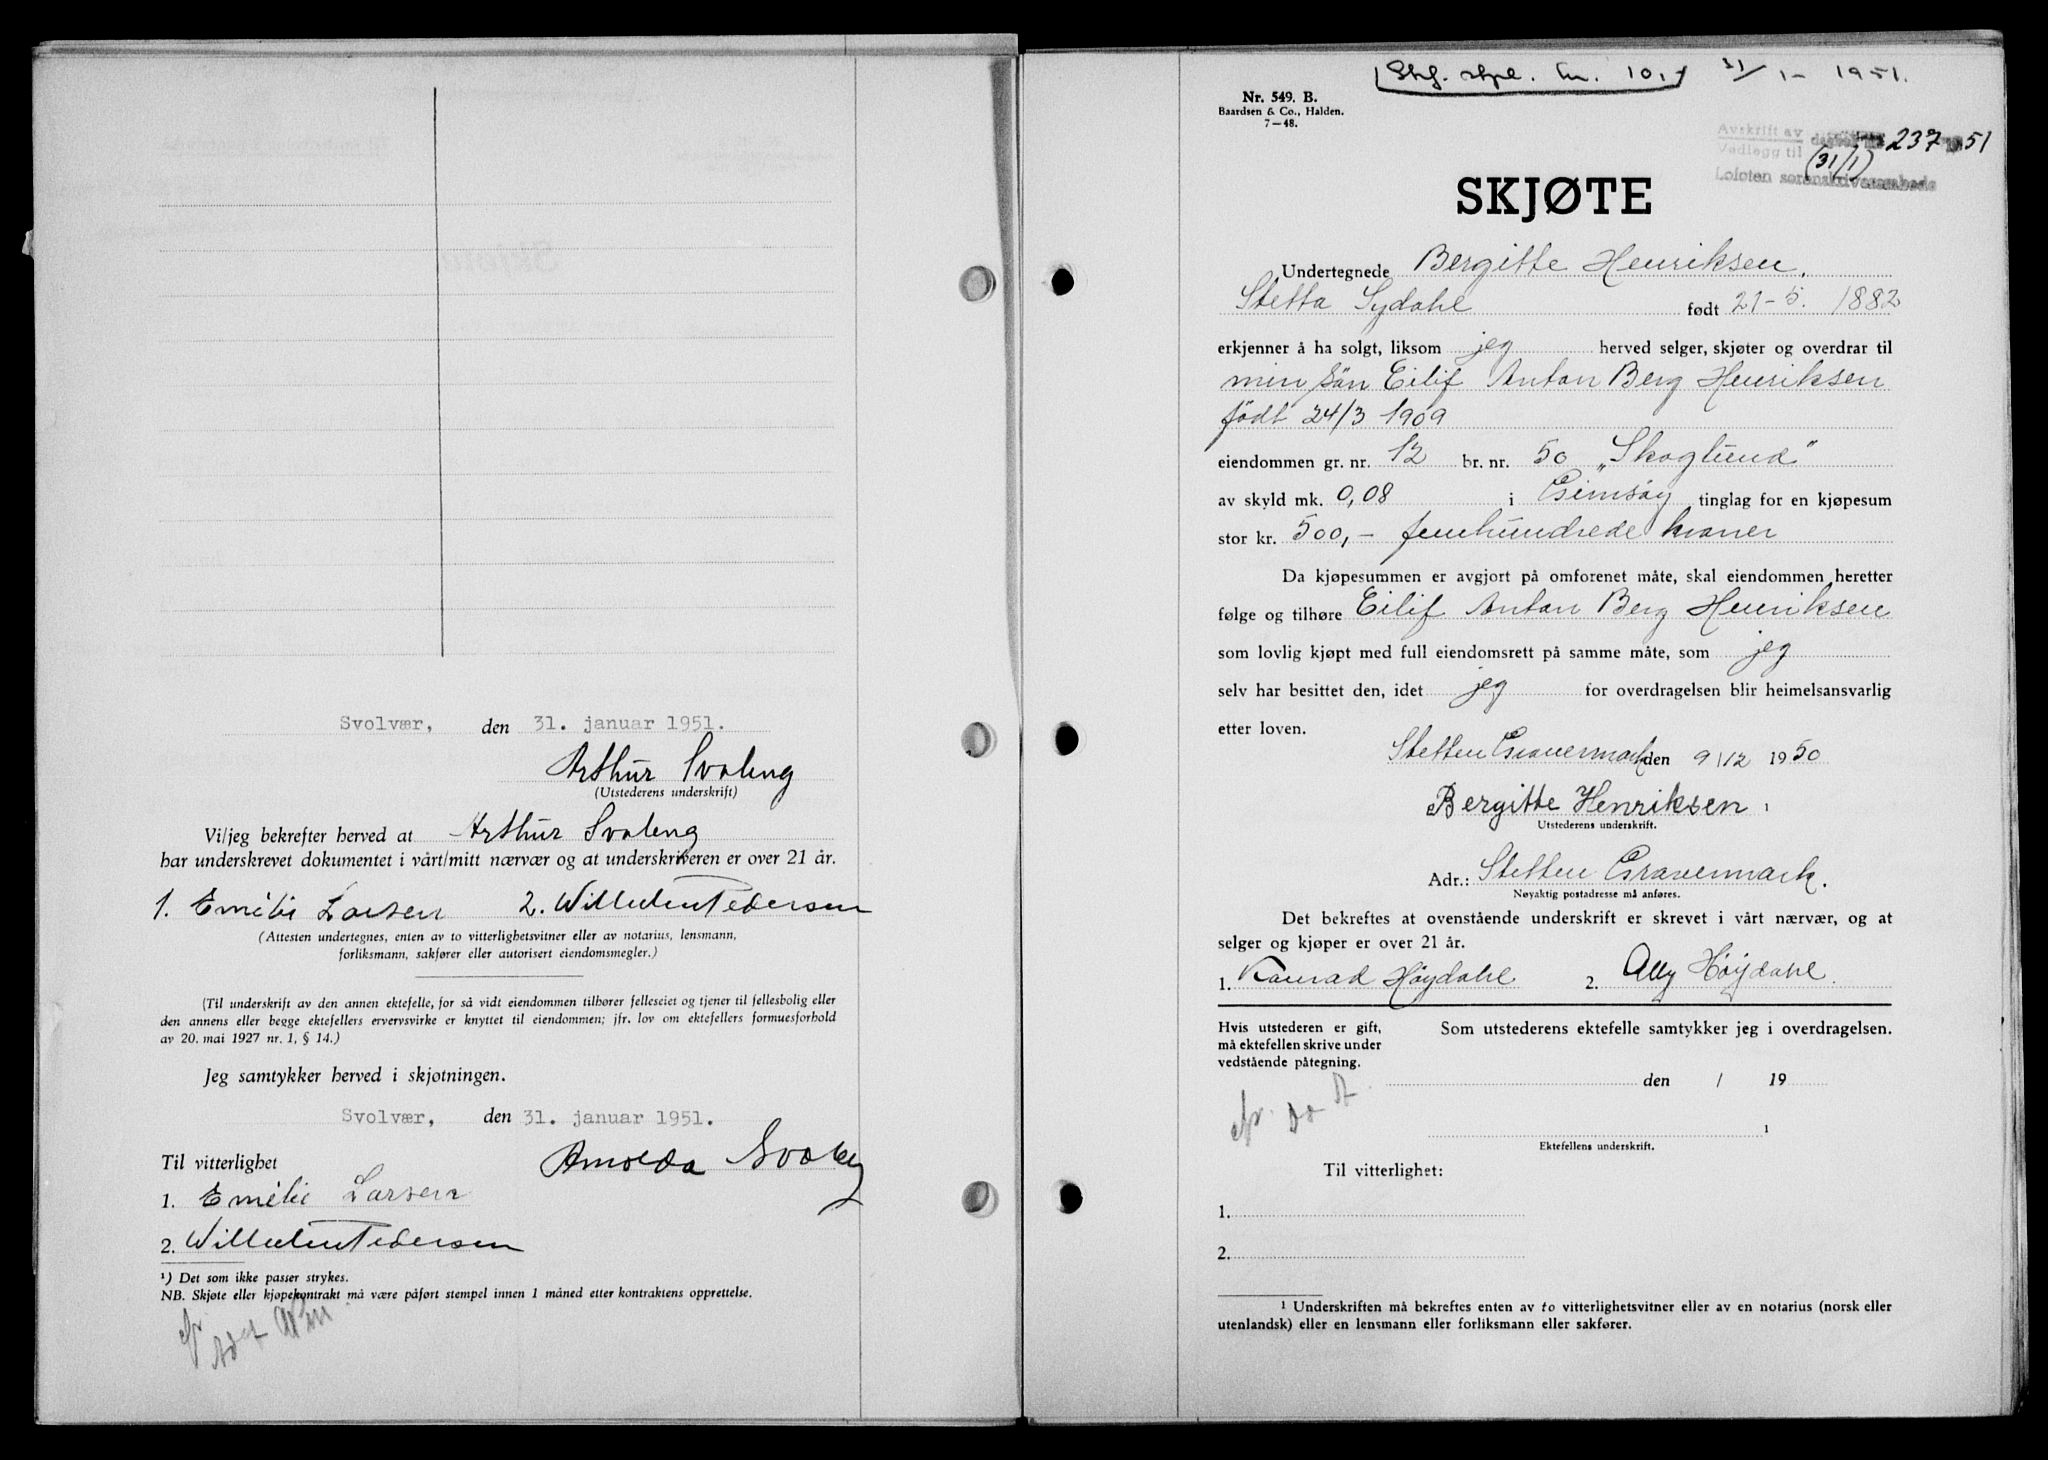 Svolvær, den 31. januar 1951.
Arthur Svoleng
(Utstederens underskrift)
Vi/jeg bekrefter herved at Arthur Svoleng
har underskrevet dokumentet i vårt/mitt nærvær og at underskriveren er over 21 år.
1. Emilie Larsen 2. Wilhelm Pedersen
(Attesten undertegnes, enten av to vitterlighetsvitner eller av notarius, lensmann,
forliksmann, sakfører eller autorisert eiendomsmegler.)
(Til underskrift av den annen ektefelle, for så vidt eiendommen tilhører felleseiet og tjener til fellesbolig eller
den annens eller begge ektefellers ervervsvirke er knyttet til eiendommen; jfr. lov om ektefellers formuesforhold
av 20. mai 1927 nr. 1, § 14.)
Jeg samtykker herved i skjøtningen.
Svolvær, den 31. januar 1951.
Til vitterlighet
1. Emilie Larsen
2. Wilhelm Pedersen
¹) Det som ikke passer strykes.
NB. Skjøte eller kjøpekontrakt må være påført stempel innen 1 måned etter kontraktens opprettelse.
Stpl. kr. 10,- 31/1- 1951.
Nr. 549. B.
Baardsen & Co., Halden.
7—48.
Avskrift av dagbok nr. 237 1951
Vedlegg til (31/1)
Lofoten sorenskriverembede
SKJØTE
Undertegnede Bergitte Henriksen.
Stetta Sydahl født 21-5. 1882
erkjenner å ha solgt, liksom jeg herved selger, skjøter og overdrar til
min søn Eilif Anton Berg Henriksen
født 24/3 1909
eiendommen gr. nr. 12 br. nr. 50 „Skoglund"
av skyld mk. 0,08 i Gimsøy tinglag for en kjøpesum
stor kr. 500,- femhundrede kroner
Da kjøpesummen er avgjort på omforenet måte, skal eiendommen heretter
følge og tilhøre Eilif Anton Berg Henriksen
som lovlig kjøpt med full eiendomsrett på samme måte, som jeg
selv har besittet den, idet jeg for overdragelsen blir heimelsansvarlig
etter loven.
Stetten Gravermark den 9/12 1950
Bergitte Henriksen ¹
Utstederens underskrift.
Adr.: Stetten Gravermark.
Nøyaktig postadresse må anføres.
Det bekreftes at ovenstående underskrift er skrevet i vårt nærvær, og at
selger og kjøper er over 21 år.
1. Konrad Høydahl 2. Ally Høydahl.
Hvis utstederen er gift,
må ektefellen skrive under
vedstående påtegning.
Som utstederens ektefelle samtykker jeg i overdragelsen.
den / 19
¹
Ektefellens underskrift.
Til vitterlighet:
1.
2.
¹ Underskriften må bekreftes enten av to vitterlighetsvitner eller av en notarius (norsk eller
utenlandsk) eller en lensmann eller forliksmann eller sakfører.